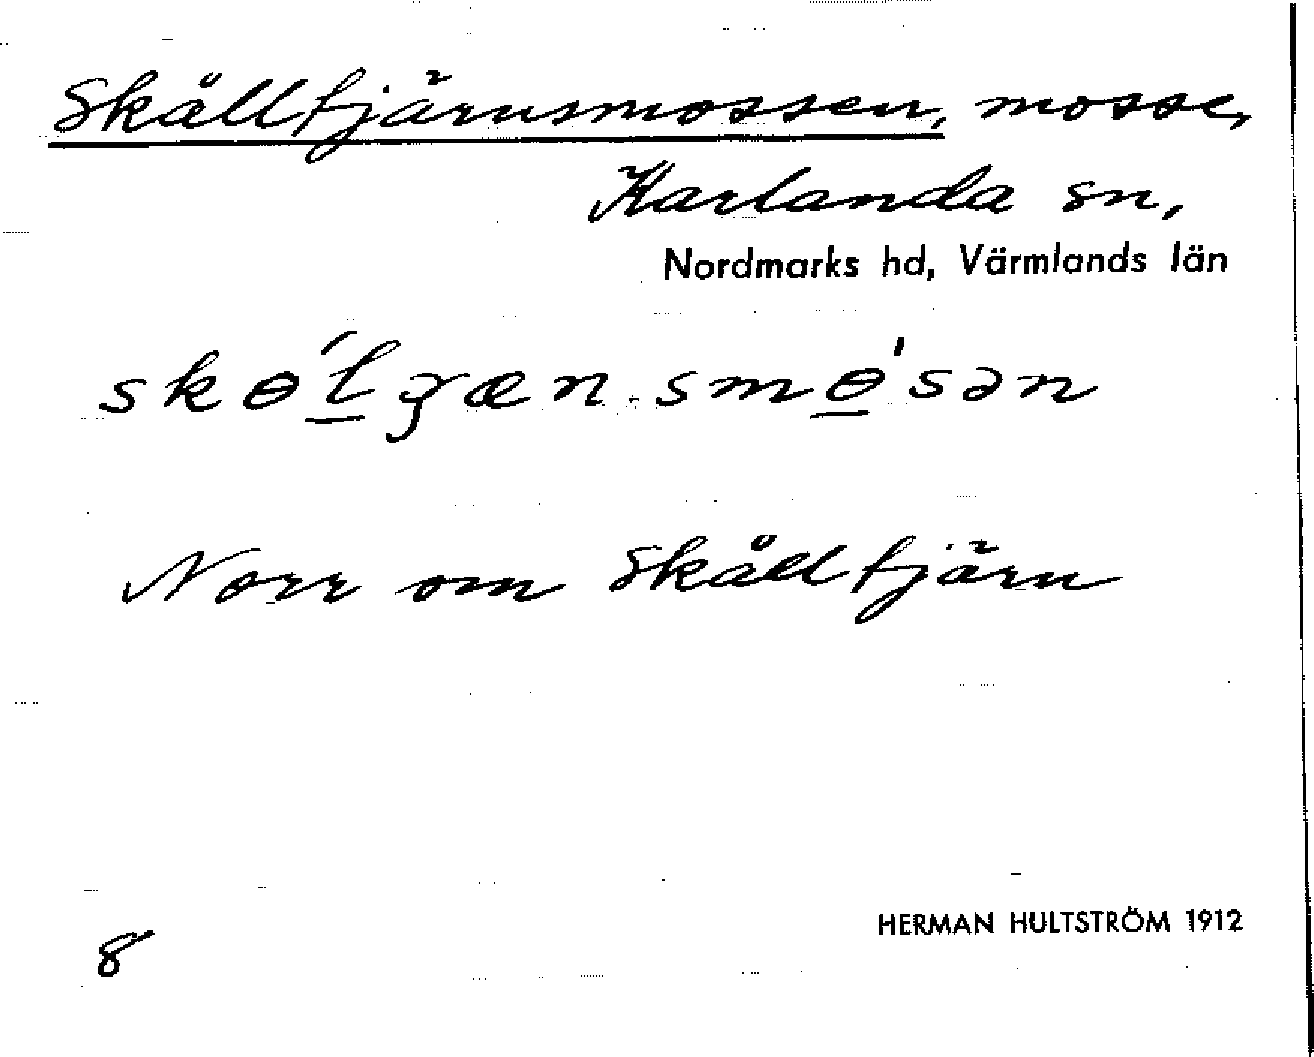 Skålltjärnsmossen, mosse,
Karlanda sn,
Nordmarks hd, Värmlands län
Norr om Skålltjärn
8
HERMAN HULTSTRÖM 1912